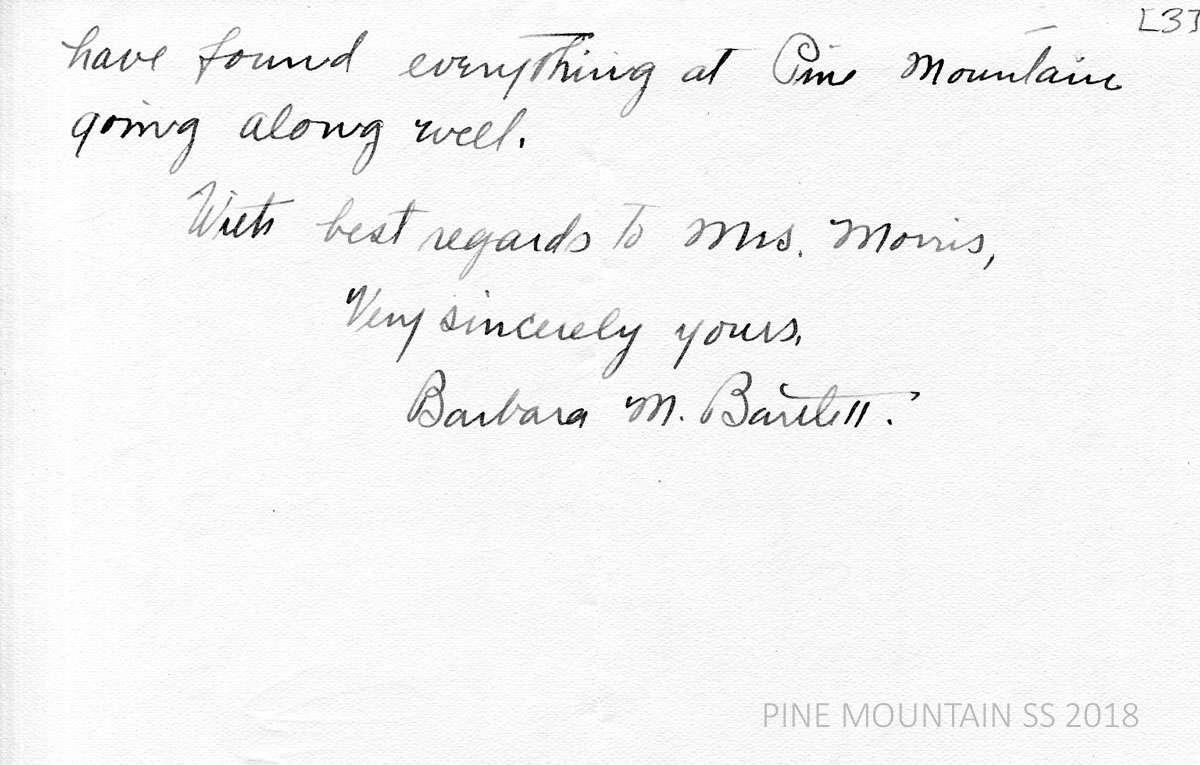 [3]
have found everything at Pine Mountain
going along well.
With best regards to Mrs. Morris,
Very sincerely yours,
Barbara M. Bartlett.
PINE MOUNTAIN SS 2018